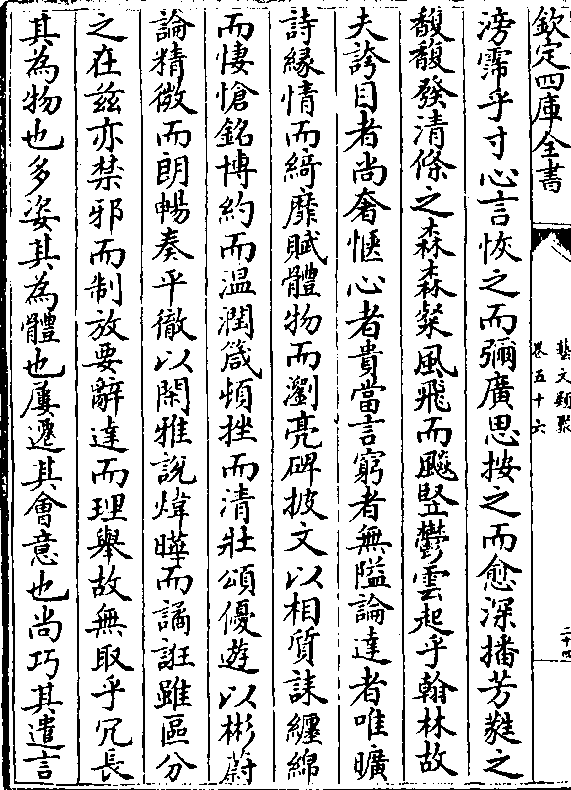 欽定四庫全書
藝文類聚
卷五十六
二十四
滂霈乎寸心言恢之而彌廣思按之而愈深播芳蕤之
馥馥發清條之森森粲風飛而飈竪鬱雲起乎翰林故
夫誇目者尚奢愜心者貴當言窮者無隘論達者唯曠
詩縁情而綺靡賦體物而瀏亮碑披文以相質誄纏綿
而悽愴銘博約而温潤箴頓挫而清壯頌優遊以彬蔚
論精微而朗暢奏平徹以閑雅說煒曄而譎誑雖區分
之在兹亦禁邪而制放要辭達而理舉故無取乎冗長
其為物也多姿其為體也屢遷其會意也尚巧其遣言